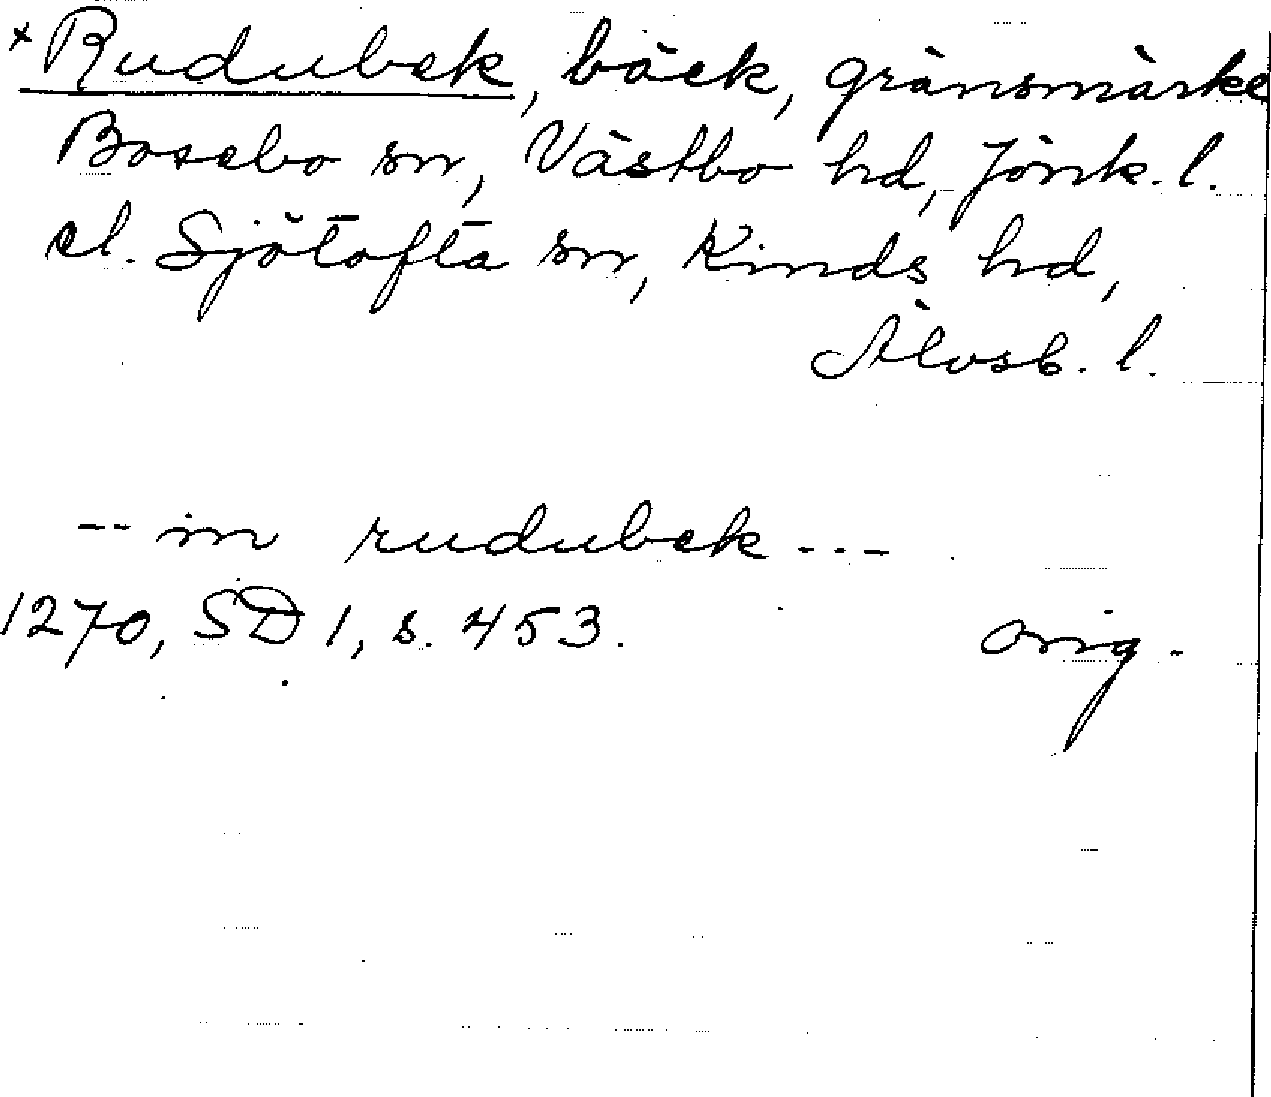 ×Rudubek, bäck, gränsmärke
Bosebo sn, Västbo hd, Jönk. l.
el. Sjötofta sn, Kinds hd,
Älvsb. l.
-- in rudubek ---
1270, SD 1, s. 453. orig.